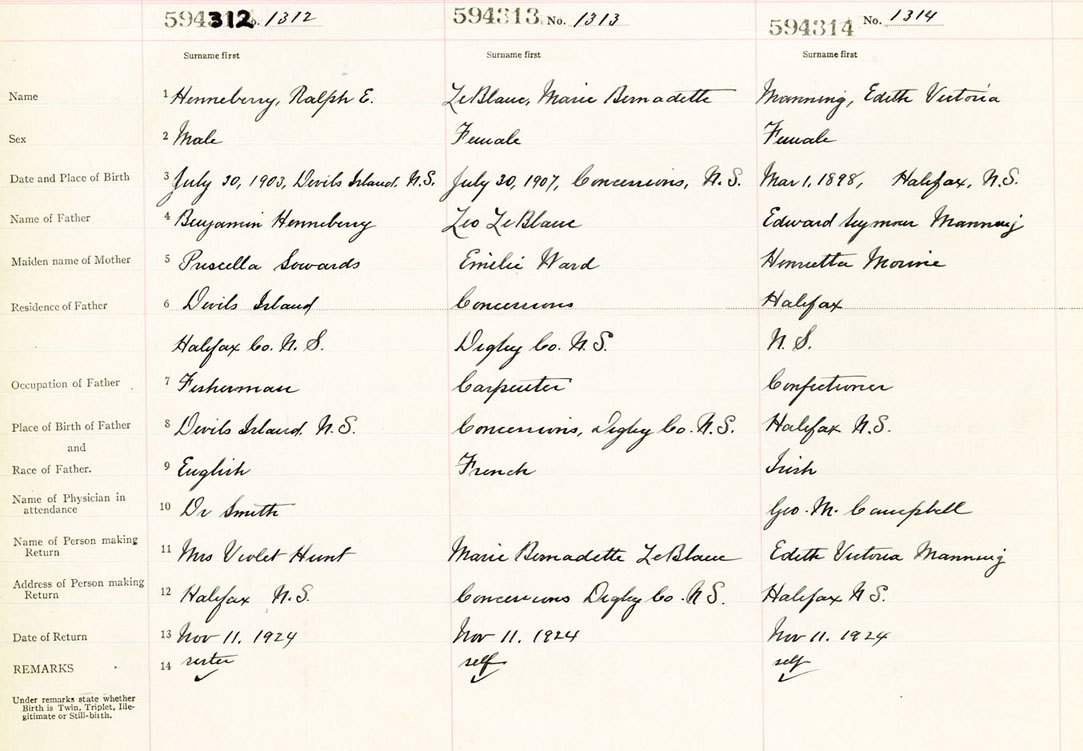 594312 No. 1312 594313 No. 1313 594314 No. 1314
Surname first Surname first Surname first
Name 1 Henneberry, Ralph E. LeBlanc, Marie Bernadette Manning, Edith Victoria
Sex 2 Male Female Female
Date and Place of Birth 3 July 30, 1903, Devils Island, N.S. July 30, 1907, Concessions, N.S. Mar 1, 1898, Halifax, N.S.
Name of Father 4 Benjamin Henneberry Leo LeBlanc Edward Seymour Manning
Maiden name of Mother 5 Priscella Sowards Emelie Ward Henrietta Morine
Residence of Father 6 Devils Island Concessions Halifax
Halifax Co. N.S. Digby Co. N.S. N.S.
Occupation of Father 7 Fisherman Carpenter Confectioner
Place of Birth of Father 8 Devils Island, N.S. Concessions, Digby Co. N.S. Halifax N.S.
and
Race of Father. 9 English French Irish
Name of Physician in 10 Dr Smith Geo. M. Campbell
attendance
Name of Person making
Return 11 Mrs Violet Hunt Marie Bernadette LeBlanc Edith Victoria Manning
Address of Person making
Return 12 Halifax N.S. Concessions Digby Co. N.S. Halifax N.S.
Date of Return 13 Nov 11. 1924 Nov 11. 1924 Nov 11. 1924
REMARKS 14 sister self self
Under remarks state whether
Birth is Twin, Triplet, Ille-
gitimate or Still-birth.